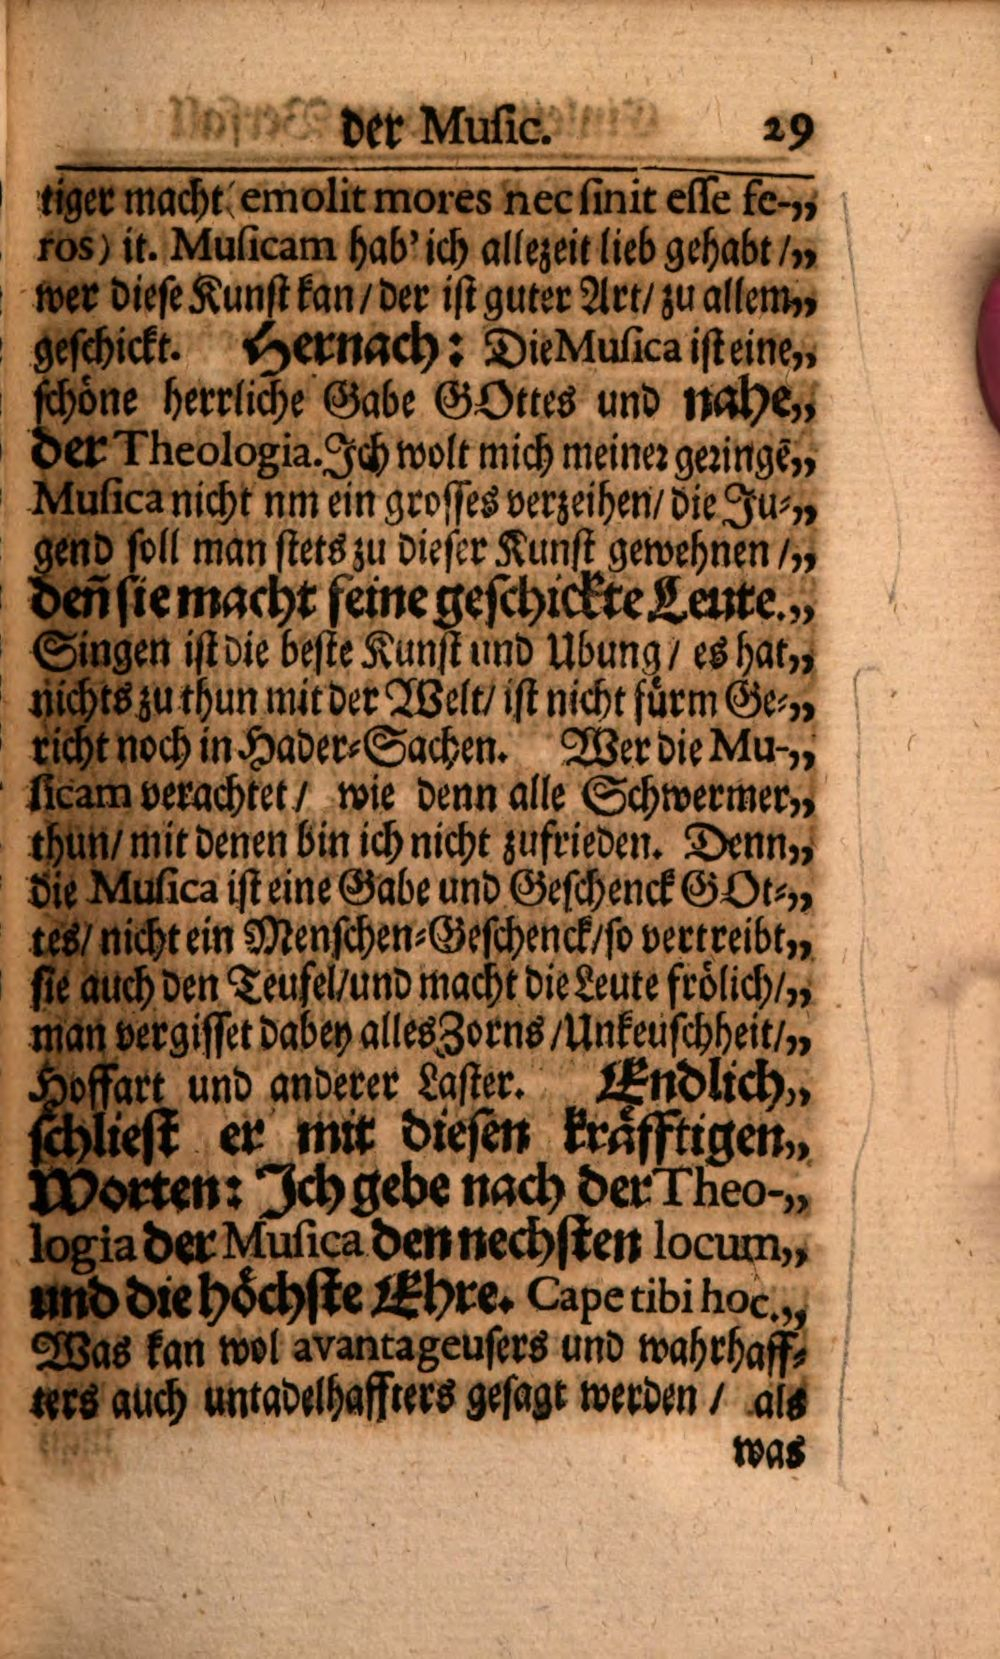 der Music. 29
tiger macht (emolit mores nec sinit esse fe-„
ros) it. Musicam hab’ ich allezeit lieb gehabt /„
wer diese Kunst kan / der ist guter Art / zu allem„
geschickt. Hernach: Die Musica ist eine„
schöne herrliche Gabe GOttes und nahe„
der Theologia. Ich wolt mich meiner geringē„
Musica nicht nm ein grosses verzeihen / die Ju-„
gend soll man stets zu dieser Kunst gewehnen /„
deñ sie macht feine geschickte Leute.„
Singen ist die beste Kunst und Ubung / es hat„
nichts zu thun mit der Welt / ist nicht fürm Ge-„
richt noch in Hader-Sachen. Wer die Mu-„
sicam verachtet / wie denn alle Schwermer„
thun / mit denen bin ich nicht zufrieden. Denn„
die Musica ist eine Gabe und Geschenck GOt-„
tes / nicht ein Menschen-Geschenck / so vertreibt„
sie auch den Teufel / und macht die Leute frölich /„
man vergisset dabey alles Zorns / Unkeuschheit /„
Hoffart und anderer Laster. Endlich„
schliest er mit diesen kräfftigen„
Worten: Ich gebe nach der Theo-„
logia der Musica den nechsten locum„
und die höchste Ehre. Cape tibi hoc.„
Was kan wol avantageusers und wahrhaff-
ters auch untadelhaffters gesagt werden / als
was